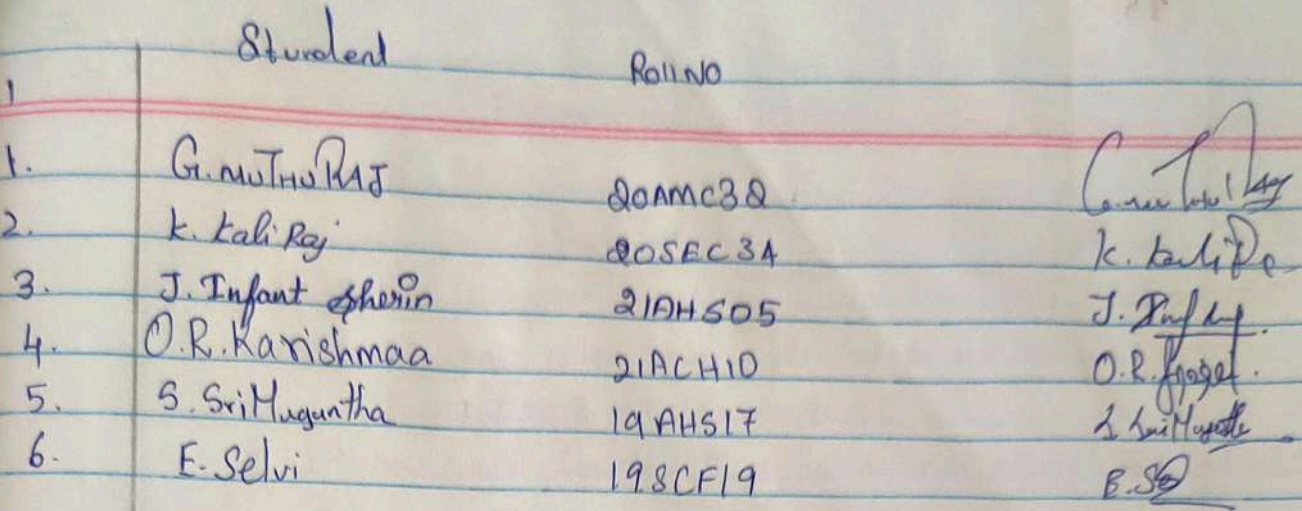 Student Roll NO
1
1. G. MUTHURAJ 20AMC32
2. K. Kali Raj 20SEC34 K.
3. J. Infant Sherin 21AHS05 J.
4. O.R. Karishmaa 21ACH10 O.R.
5. S. Sri Mugantha 19AHS17
6. E. Selvi 19SCF19